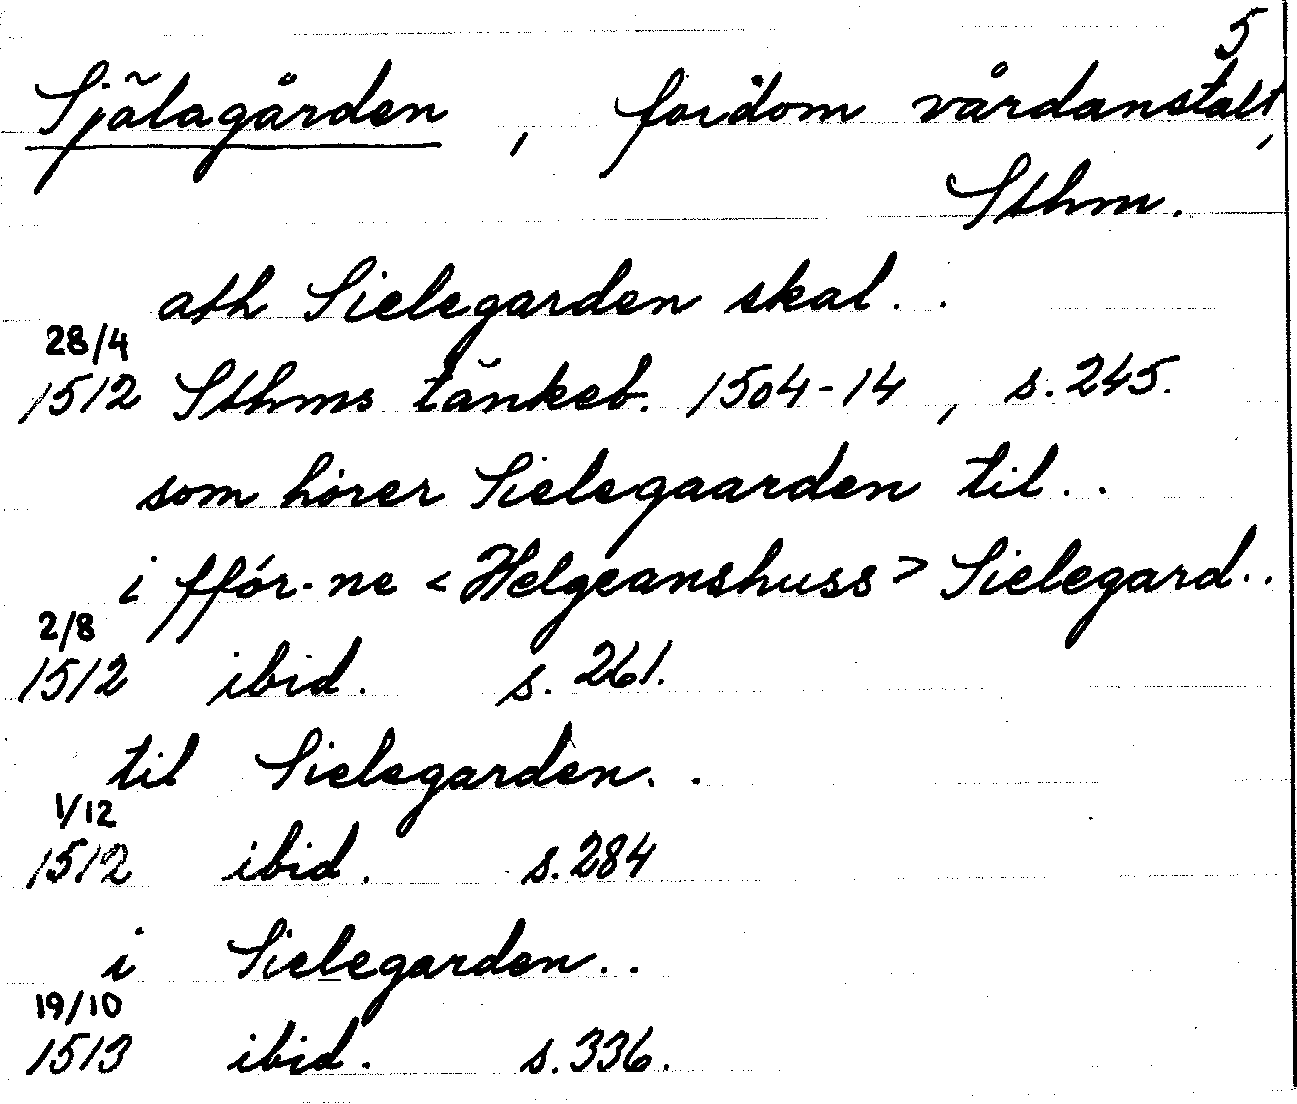 5
Själagården, fordom vårdanstalt,
Sthm.
ath Sielegarden skal..
28/4
1512 Sthms tänkeb. 1504-14, s. 245.
som hörer Sielegaarden til..
i fför-ne <Helgeanshuss> Sielegard..
2/8
1512 ibid. s. 261.
til Sielegarden..
1/12
1512 ibid. s. 284
i Sielegarden..
19/10
1513 ibid. s. 336.